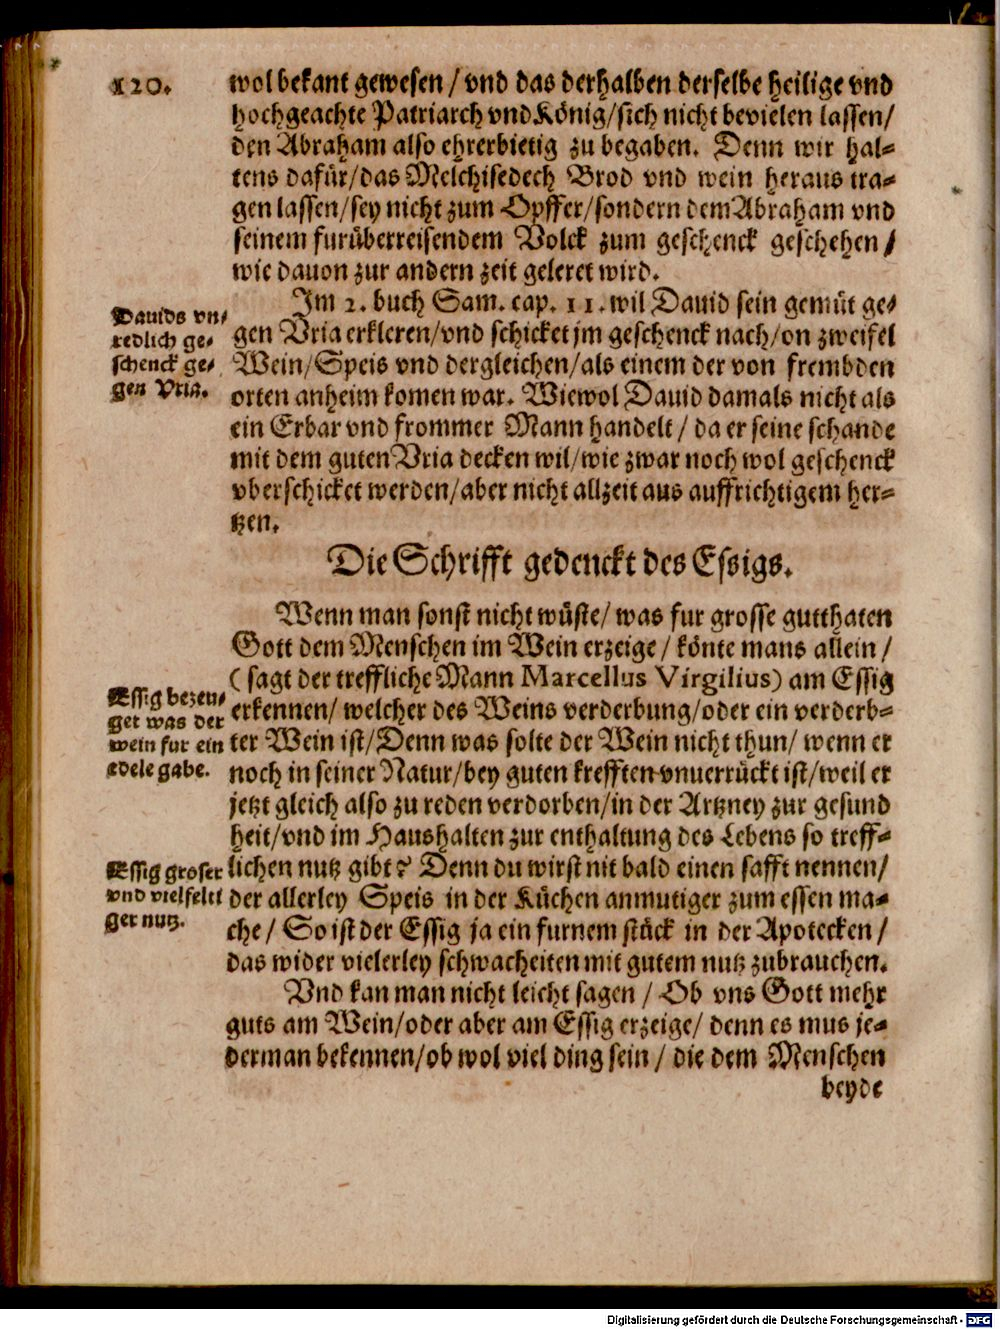 120.
wol bekant gewesen / vnd das derhalben derselbe heilige vnd
hochgeachte Patriarch vnd König/sich nicht bevielen lassen/
den Abraham also ehrerbietig zu begaben. Denn wir hal=
tens dafür/das Melchisedech Brod vnd wein heraus tra=
gen lassen/sey nicht zum Opffer/sondern dem Abraham vnd
seinem furüberreisendem Volck zum geschenck geschehen/
wie dauon zur andern zeit geleret wird.
Im 2. buch Sam. cap. 11. wil Dauid sein gemüt ge=
gen Vria erkleren/vnd schicket jm geschenck nach/on zweifel
Wein/Speis vnd dergleichen/als einem der von frembden
orten anheim komen war. Wiewol Dauid damals nicht als
ein Erbar vnd frommer Mann handelt / da er seine schande
mit dem guten Vria decken wil/wie zwar noch wol geschenck
vberschicket werden/aber nicht allzeit aus auffrichtigem her=
tzen.
Dauids vn=
redlich ge=
schenck ge=
gen Vria.
Die Schrifft gedenckt des Essigs.
Wenn man sonst nicht wüste/ was fur grosse gutthaten
Gott dem Menschen im Wein erzeige / könte mans allein /
( sagt der treffliche Mann Marcellus Virgilius) am Essig
erkennen/ welcher des Weins verderbung/oder ein verderb=
ter Wein ist/Denn was solte der Wein nicht thun/ wenn er
noch in seiner Natur/bey guten krefften vnuerrückt ist/weil er
jetzt gleich also zu reden verdorben/in der Artzney zur gesund
heit/vnd im Haushalten zur enthaltung des Lebens so treff=
lichen nutz gibt? Denn du wirst nit bald einen safft nennen/
der allerley Speis in der Küchen anmutiger zum essen ma=
che/ So ist der Essig ja ein furnem stück in der Apotecken /
das wider vielerley schwacheiten mit gutem nutz zubrauchen.
Essig bezeu=
get was der
wein fur ein
edele gabe.
Essig groser
vnd vielfelti
ger nutz.
Vnd kan man nicht leicht sagen / Ob vns Gott mehr
guts am Wein/oder aber am Essig erzeige/ denn es mus je=
derman bekennen/ob wol viel ding sein / die dem Menschen
beyde
Digitalisierung gefördert durch die Deutsche Forschungsgemeinschaft - DFG